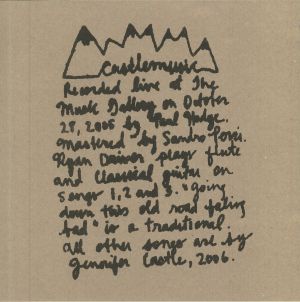 Castlemusic
Recorded live at The
Music Gallery on October
28, 2005 by Paul Hodge.
Mastered by Sandro Perri.
Ryan Driver plays flute
and Classical guitar on
songs 1, 2 and 3. "going
down this old road feeling
bad" is a traditional.
all other songs are by
Jennifer Castle, 2006.